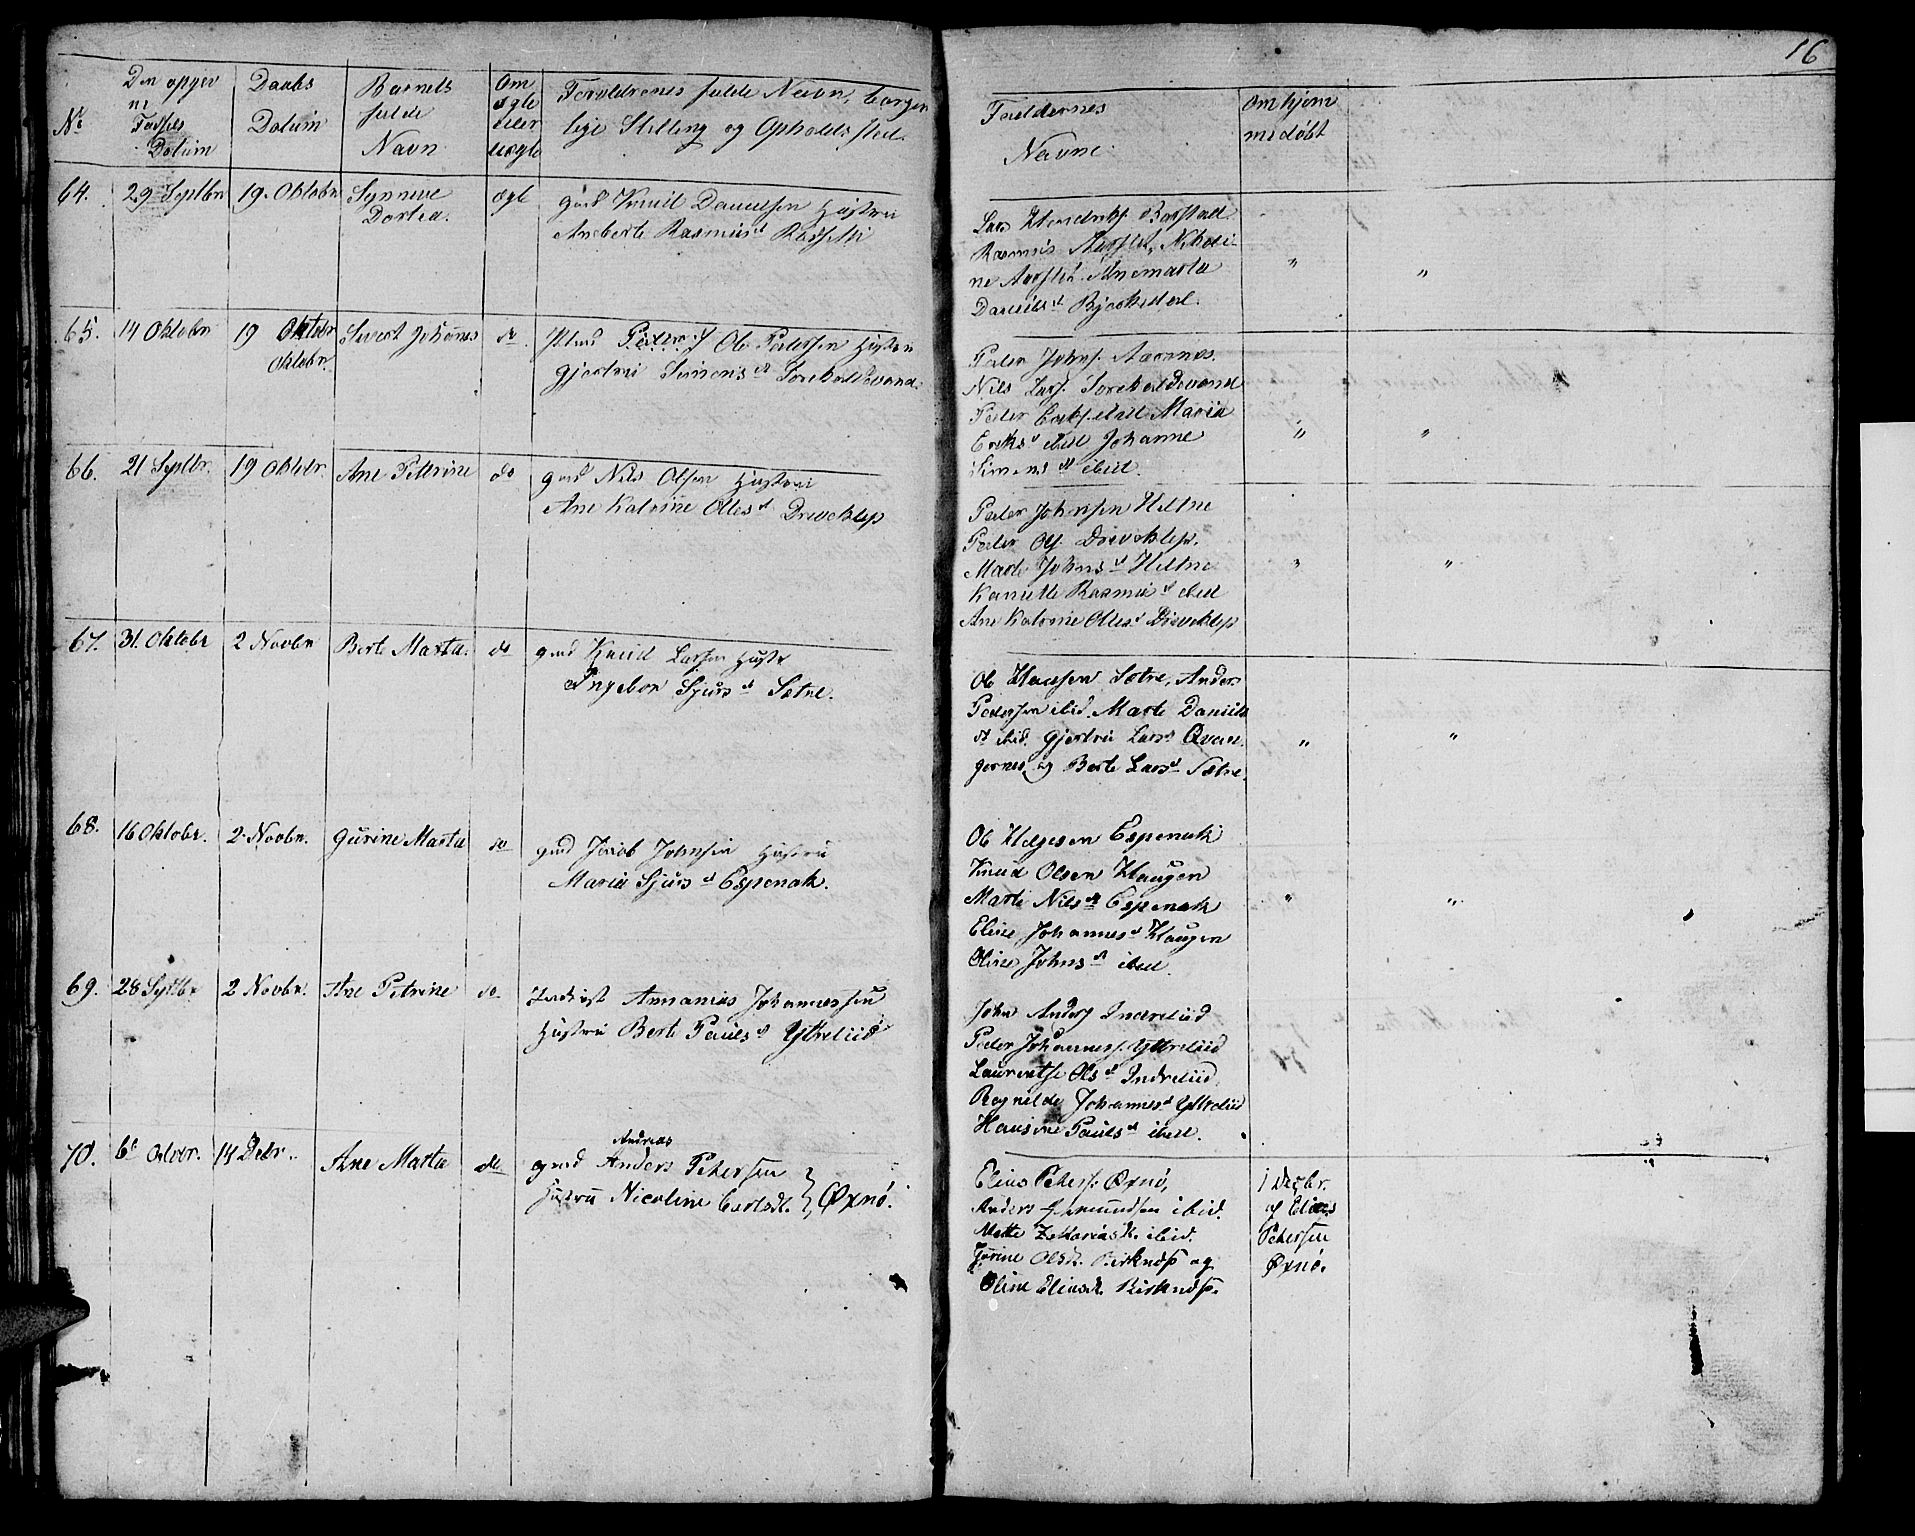 16
No
Den opgev
ne
Fødsels
Datum
Daabs
Datum
Barnets
fulde
Navn
Om
ægte
eller
uægte
Forældrenes fulde Navn, borger
lige Stilling og Opholds sted
Faddernes
Navne.
Om hjem
medøbt
64. 29 Septbr 19. Oktobr Synneve
Dortea.
ægte
gmd Knud Danielsen Hustru
Aneberte Rasmusd
Lars Hendriks. Barstad
Rasmus Aarflot, Nikoli-
ne Aarflot Anemarta
Danielsd Bjørkedal.
65. 14 Oktobr 19 Oktobr
Oktobr.
Sivert Johannes do.
Peders. Ole Pedersen Hustru
Gjertrui Simensd
Peder Johns. Aarnes.
Nils Lars.
Peder ibid Maria
Eriksd ibid Johanne
Simensd ibid.
66. 21 Septbr. 19 Oktobr. Ane Petrine do
gmd Nils Olsen Hustru
Ane Katrine Ollesd Drevoklep
Peder Johnsen Heltne
Peder Ols. Drevoklep.
Marte Johnsd Heltne
Rasmusd ibid
Ane Katrine Ollesd Drevoklep
67. 31. Oktobr 2 Novbr Berte Marta. do
gmd Knud Larsen Hustr
Ingebor Sjursd Sætre.
Ole Hansen Sætre, Anders
Pedersen ibid. Marte Daniels
d ibid. Gjertrui Larsd Qvan
gernes, og Berte Larsd Sætre.
68. 16 Oktobr. 2 Novbr. Gurine Marta do
gmd Jacob Johnsen Hustru
Maria Sjursd Espenak.
Ole Helgesen Espenak
Knud Olsen Haugen
Marte Nilsd Espenak
Eline Johannesd Haugen
Oline Johnsd ibid.
69. 28 Septbr 2 Novbr. Ane Petrine do
Annanias Johannessen
Hustru Berte Paulsd Ytreliid
John Anders Indreliid
Peder Johanness. Ytreliid
Lauventse Olsd Indreliid
Ragnilde Johannesd Ytreliid
Hansine Paulsd ibid.
70. 6te Octbr. 14 Decbr. Ane Marta do
Andreas
gmd Anders Petersen
Hustru Nicoline } Øxnø.
Elias Peters. Øxnø,
Anders Amundsen ibid.
Mette Zakariasd. ibid.
Jørine Olsd. Birknds og
Oline Eliasd. Birknds.
1 Decbr.
af Elias
Petersen
Øxnø.